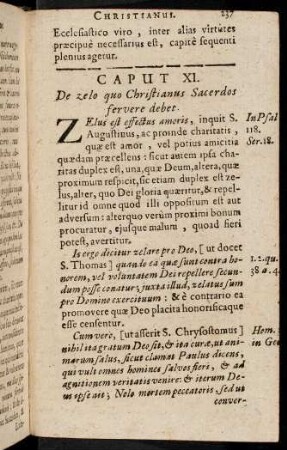 CHRISTIANUS.
237
Ecclesiastico viro, inter alias virtutes
præcipuè necessarius est, capite sequenti
plenius agetur.
CAPUT XI.
De zelo quo Christianus Sacerdos
fervere debet.
ZElus est effectus amoris, inquit S.
Augustinus, ac proinde charitatis,
quæ est amor, vel potius amicitia
quædam præcellens: sicut autem ipsa cha-
ritas duplex est, una, quæ Deum, altera, quæ
proximum respicit, sic etiam duplex est ze-
lus, alter, quo Dei gloria quæritur, & repel-
litur id omne quod illi oppositum est aut
adversum: alter quo verùm proximi bonum
procuratur, ejusque malum, quoad fieri
potest, avertitur.
In Psal
118.
Ser. 18.
Is ergo dicitur zelare pro Deo, [ut docet
S. Thomas] quando ea quæ sunt contra ho-
norem, vel voluntatem Dei repellere secun-
dum posse conatur; juxta illud, zelatus sum
pro Domino exercituum: & è contrario ea
promovere quæ Deo placita honorificaque
esse censentur.
1. 2. qu.
38 a. 4.
Cum vero, [ut asserit S. Chrysostomus]
nihil ita gratum Deo sit, & ita curæ, ut ani-
marum salus, sicut clamat Paulus dicens,
qui vult omnes homines salvos fieri, & ad
agnitionem veritatis venire: & iterum De-
us ipse ait; Nolo mortem peccatoris, sed ut
conver-
Hom.
in Ge